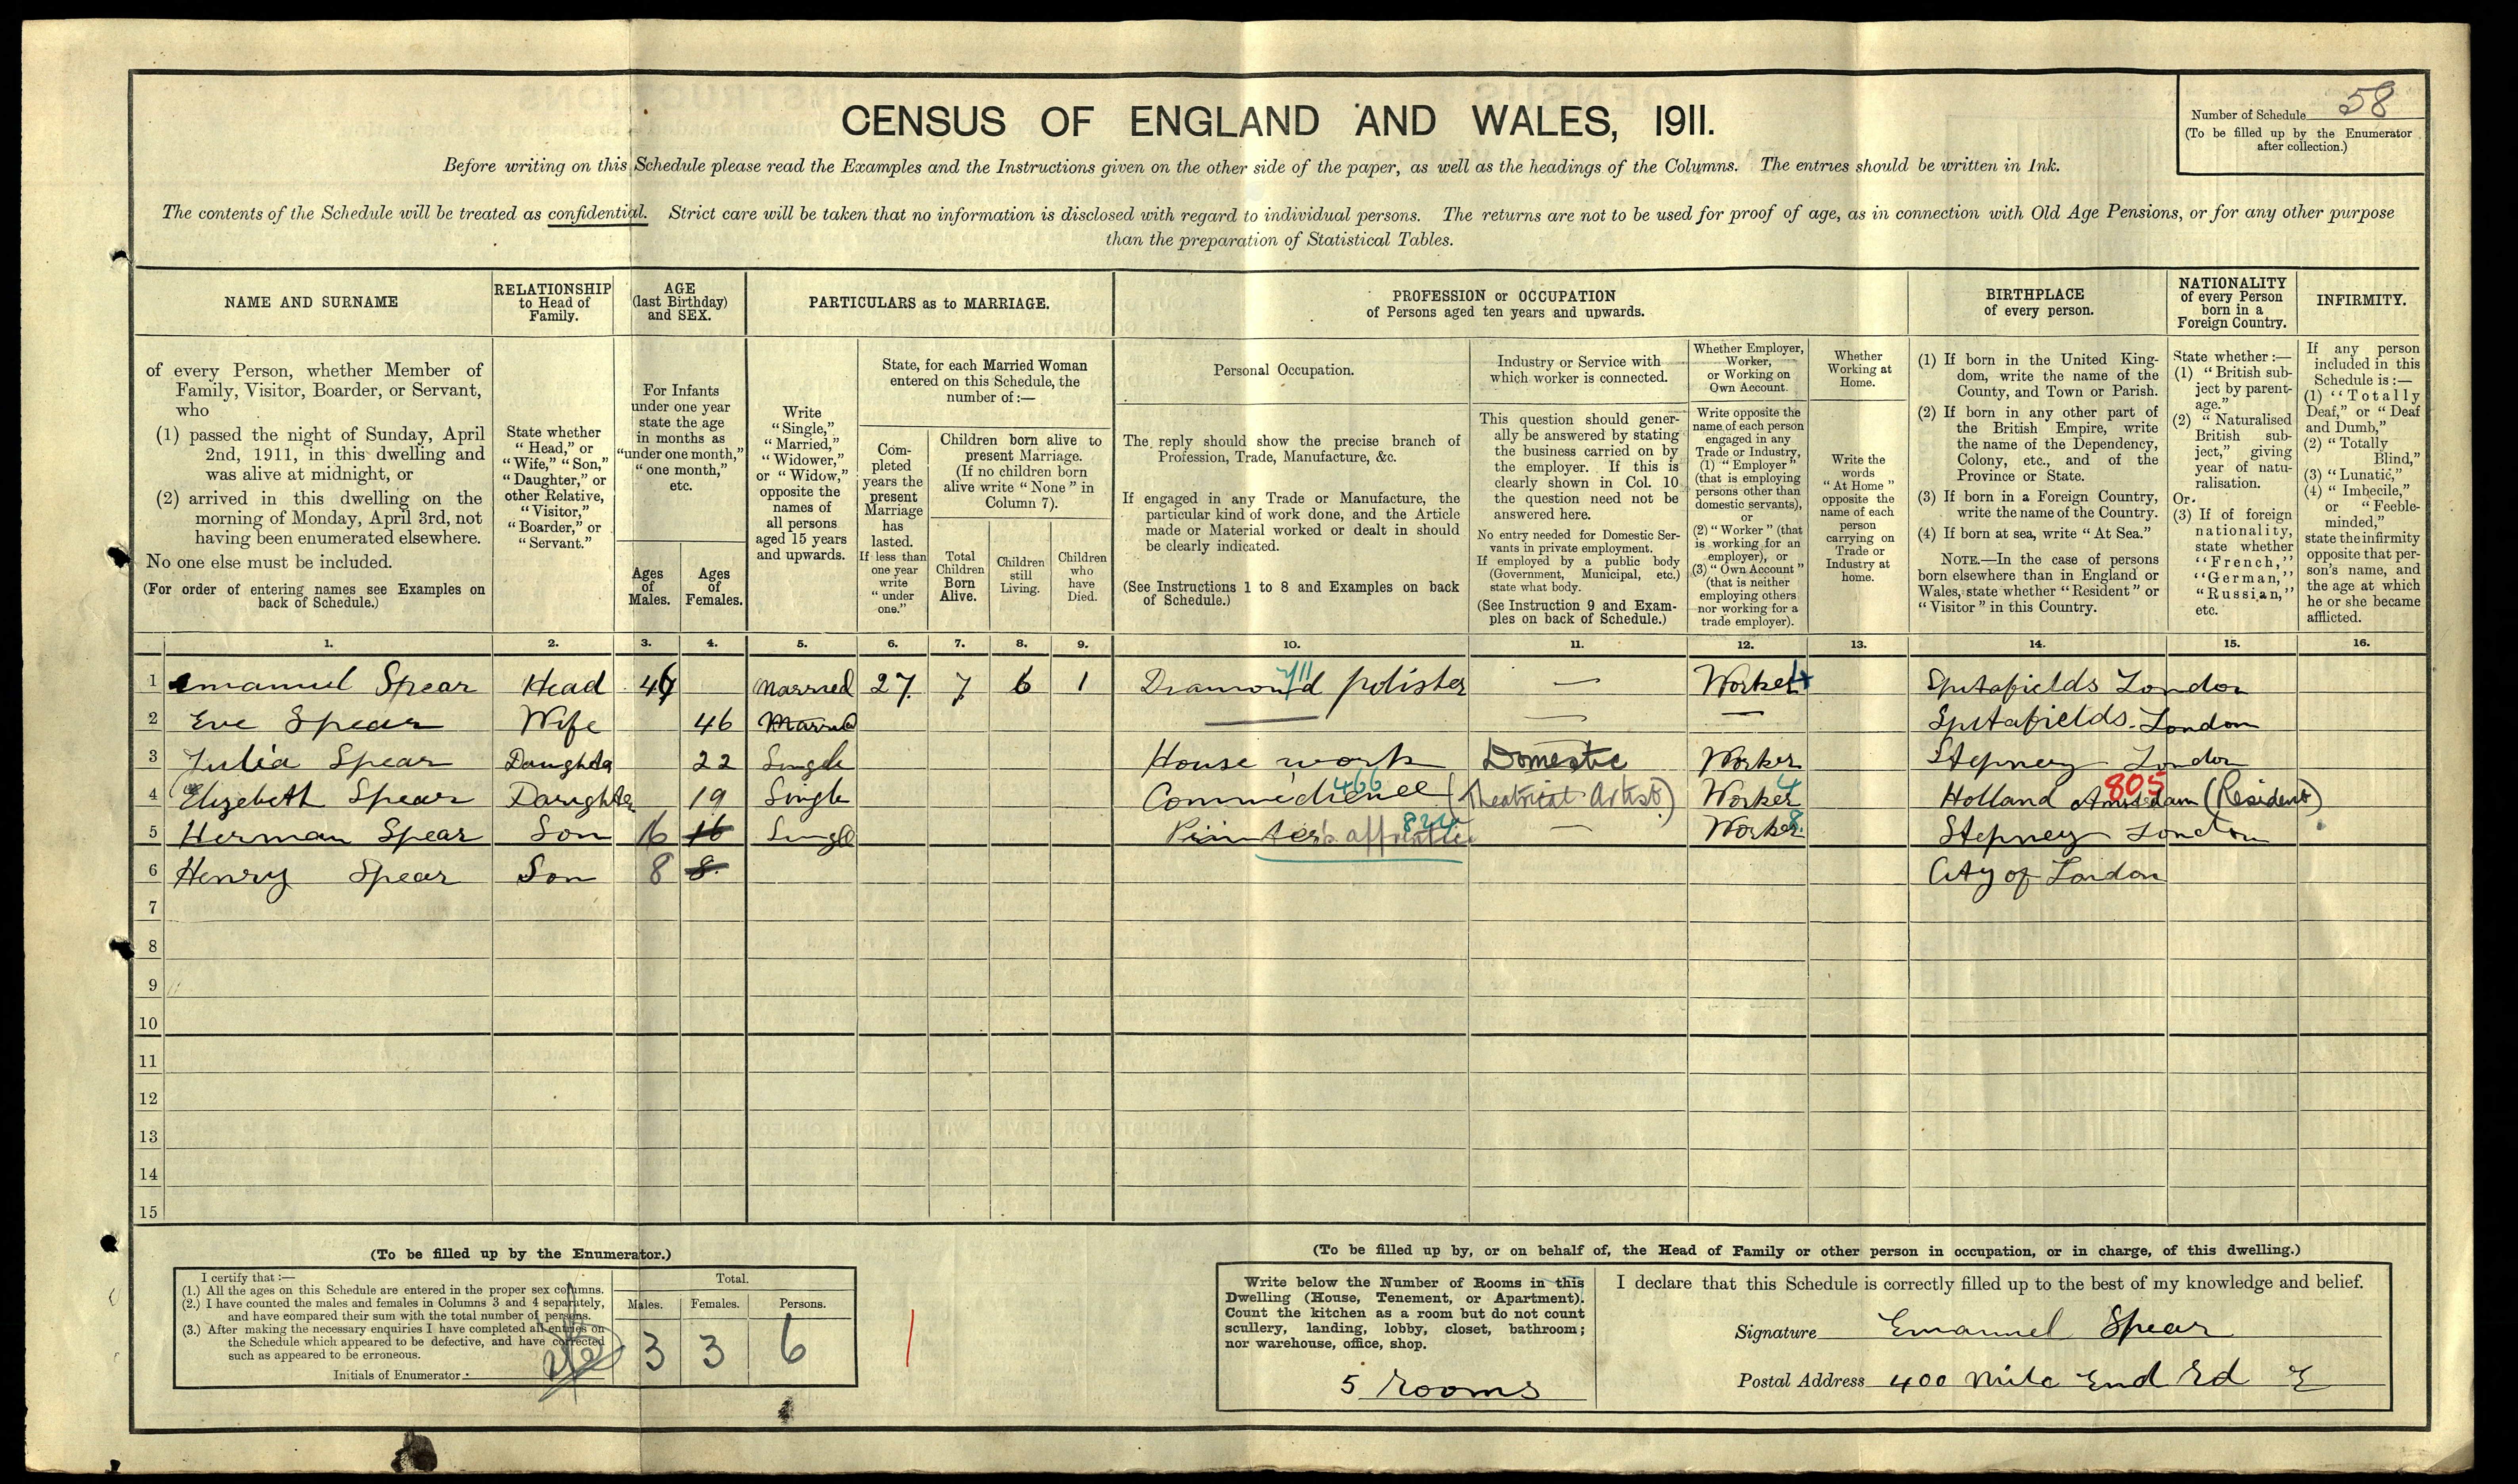 CENSUS OF ENGLAND AND WALES, 1911.
Number of Schedule 58
(To be filled up by the Enumerator
after collection.)
Before writing on this Schedule please read the Examples and the Instructions given on the other side of the paper, as well as the headings of the Columns. The entries should be written in Ink.
The contents of the Schedule will be treated as confidential. Strict care will be taken that no information is disclosed with regard to individual persons. The returns are not to be used for proof of age, as in connection with Old Age Pensions, or for any other purpose
than the preparation of Statistical Tables.
NAME AND SURNAME
of every Person, whether Member of
Family, Visitor, Boarder, or Servant,
who
(1) passed the night of Sunday, April
2nd, 1911, in this dwelling and
was alive at midnight, or
(2) arrived in this dwelling on the
morning of Monday, April 3rd, not
having been enumerated elsewhere.
No one else must be included.
(For order of entering names see Examples on
back of Schedule.)
RELATIONSHIP
to Head of
Family.
State whether
"Head," or
"Wife," "Son,"
"Daughter," or
other Relative,
"Visitor,"
"Boarder," or
"Servant."
AGE
(last Birthday)
and SEX.
For Infants
under one year
state the age
in months as
"under one month,"
"one month,"
etc.
Ages
of
Males.
Ages
of
Females.
PARTICULARS as to MARRIAGE.
Write
"Single,"
"Married,"
"Widower,"
or "Widow,"
opposite the
names of
all persons
aged 15 years
and upwards.
State, for each Married Woman
entered on this Schedule, the
number of:—
Com-
pleted
years the
present
Marriage
has
lasted.
If less than
one year
write
"under
one."
Children born alive to
present Marriage.
(If no children born
alive write "None" in
Column 7).
Total
Children
Born
Alive.
Children
still
Living.
Children
who
have
Died.
PROFESSION or OCCUPATION
of Persons aged ten years and upwards.
Personal Occupation.
The reply should show the precise branch of
Profession, Trade, Manufacture, &c.
If engaged in any Trade or Manufacture, the
particular kind of work done, and the Article
made or Material worked or dealt in should
be clearly indicated.
(See Instructions 1 to 8 and Examples on back
of Schedule.)
Industry or Service with
which worker is connected.
This question should gener-
ally be answered by stating
the business carried on by
the employer. If this is
clearly shown in Col. 10
the question need not be
answered here.
No entry needed for Domestic Ser-
vants in private employment.
If employed by a public body
(Government, Municipal, etc.)
state what body.
(See Instruction 9 and Exam-
ples on back of Schedule.)
Whether Employer,
Worker,
or Working on
Own Account.
Write opposite the
name of each person
engaged in any
Trade or Industry,
(1) "Employer"
(that is employing
persons other than
domestic servants),
or
(2) "Worker" (that
is working for an
employer), or
(3) "Own Account"
(that is neither
employing others
nor working for a
trade employer).
Whether
Working at
Home.
Write the
words
"At Home"
opposite the
name of each
person
carrying on
Trade or
Industry at
home.
BIRTHPLACE
of every person.
(1) If born in the United King-
dom, write the name of the
County, and Town or Parish.
(2) If born in any other part of
the British Empire, write
the name of the Dependency,
Colony, etc., and of the
Province or State.
(3) If born in a Foreign Country,
write the name of the Country.
(4) If born at sea, write "At Sea."
NOTE.—In the case of persons
born elsewhere than in England or
Wales, state whether "Resident" or
"Visitor" in this Country.
NATIONALITY
of every Person
born in a
Foreign Country.
State whether:—
(1) "British sub-
ject by parent-
age."
(2) "Naturalised
British sub-
ject," giving
year of natu-
ralisation.
Or
(3) If of foreign
nationality,
state whether
"French,"
"German,"
"Russian,"
etc.
INFIRMITY.
If any person
included in this
Schedule is:—
(1) "Totally
Deaf," or "Deaf
and Dumb,"
(2) "Totally
Blind,"
(3) "Lunatic,"
(4) "Imbecile,"
or "Feeble-
minded,"
state the infirmity
opposite that per-
son's name, and
the age at which
he or she became
afflicted.
1. 2. 3. 4. 5. 6. 7. 8. 9. 10. 11. 12. 13. 14. 15. 16.
1 Emanuel Spear Head 46 Married 27 7 6 1 Diamond polisher 711 — Worker 4 Spitafields London
2 Eve Spear Wife 46 Married — — — Spitafields London
3 Julia Spear Daughter 22 Single House work Domestic Worker Stepney London
4 Elizebeth Spear Daughter 19 Single Commedienee 466 (Theatrical Artist) Worker 4 Holland Amsterdam 805 (Resident)
5 Herman Spear Son 16 16 Single Printer's apprentice — Worker 8 Stepney London
6 Henry Spear Son 8 8 City of London
7
8
9
10
11
12
13
14
15
(To be filled up by the Enumerator.)
I certify that:—
(1.) All the ages on this Schedule are entered in the proper sex columns.
(2.) I have counted the males and females in Columns 3 and 4 separately,
and have compared their sum with the total number of persons.
(3.) After making the necessary enquiries I have completed all entries on
the Schedule which appeared to be defective, and have corrected
such as appeared to be erroneous.
Initials of Enumerator
Total.
Males. Females. Persons.
3 3 6
(To be filled up by, or on behalf of, the Head of Family or other person in occupation, or in charge, of this dwelling.)
Write below the Number of Rooms in this
Dwelling (House, Tenement, or Apartment).
Count the kitchen as a room but do not count
scullery, landing, lobby, closet, bathroom;
nor warehouse, office, shop.
5 Rooms
I declare that this Schedule is correctly filled up to the best of my knowledge and belief.
Signature Emanuel Spear
Postal Address 400 Mile End Rd E